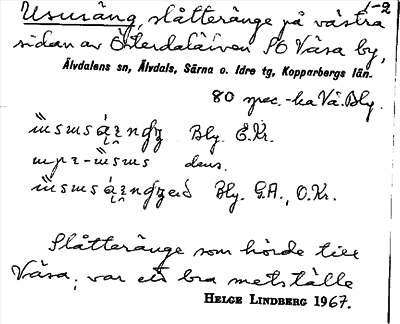 1-2
Usuräng, slåtteränge på västra
sidan av Österdalälven SO Våsa by,
Älvdalens sn, Älvdals, Särna o. Idre tg, Kopparbergs län.
80 spec.-ka Vå. Bly.
Bly. E.Kr.
dens.
Bly. G.A., O.Kr.
Slåtteränge som hörde till
Våsa; var ett bra metställe
HELGE LINDBERG 1967.